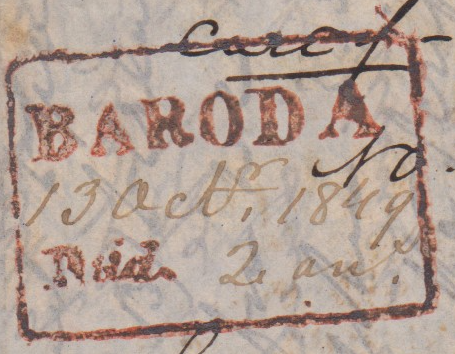 Care of
BARODA
No.
13 Octr. 1849
Paid. 2 ans.